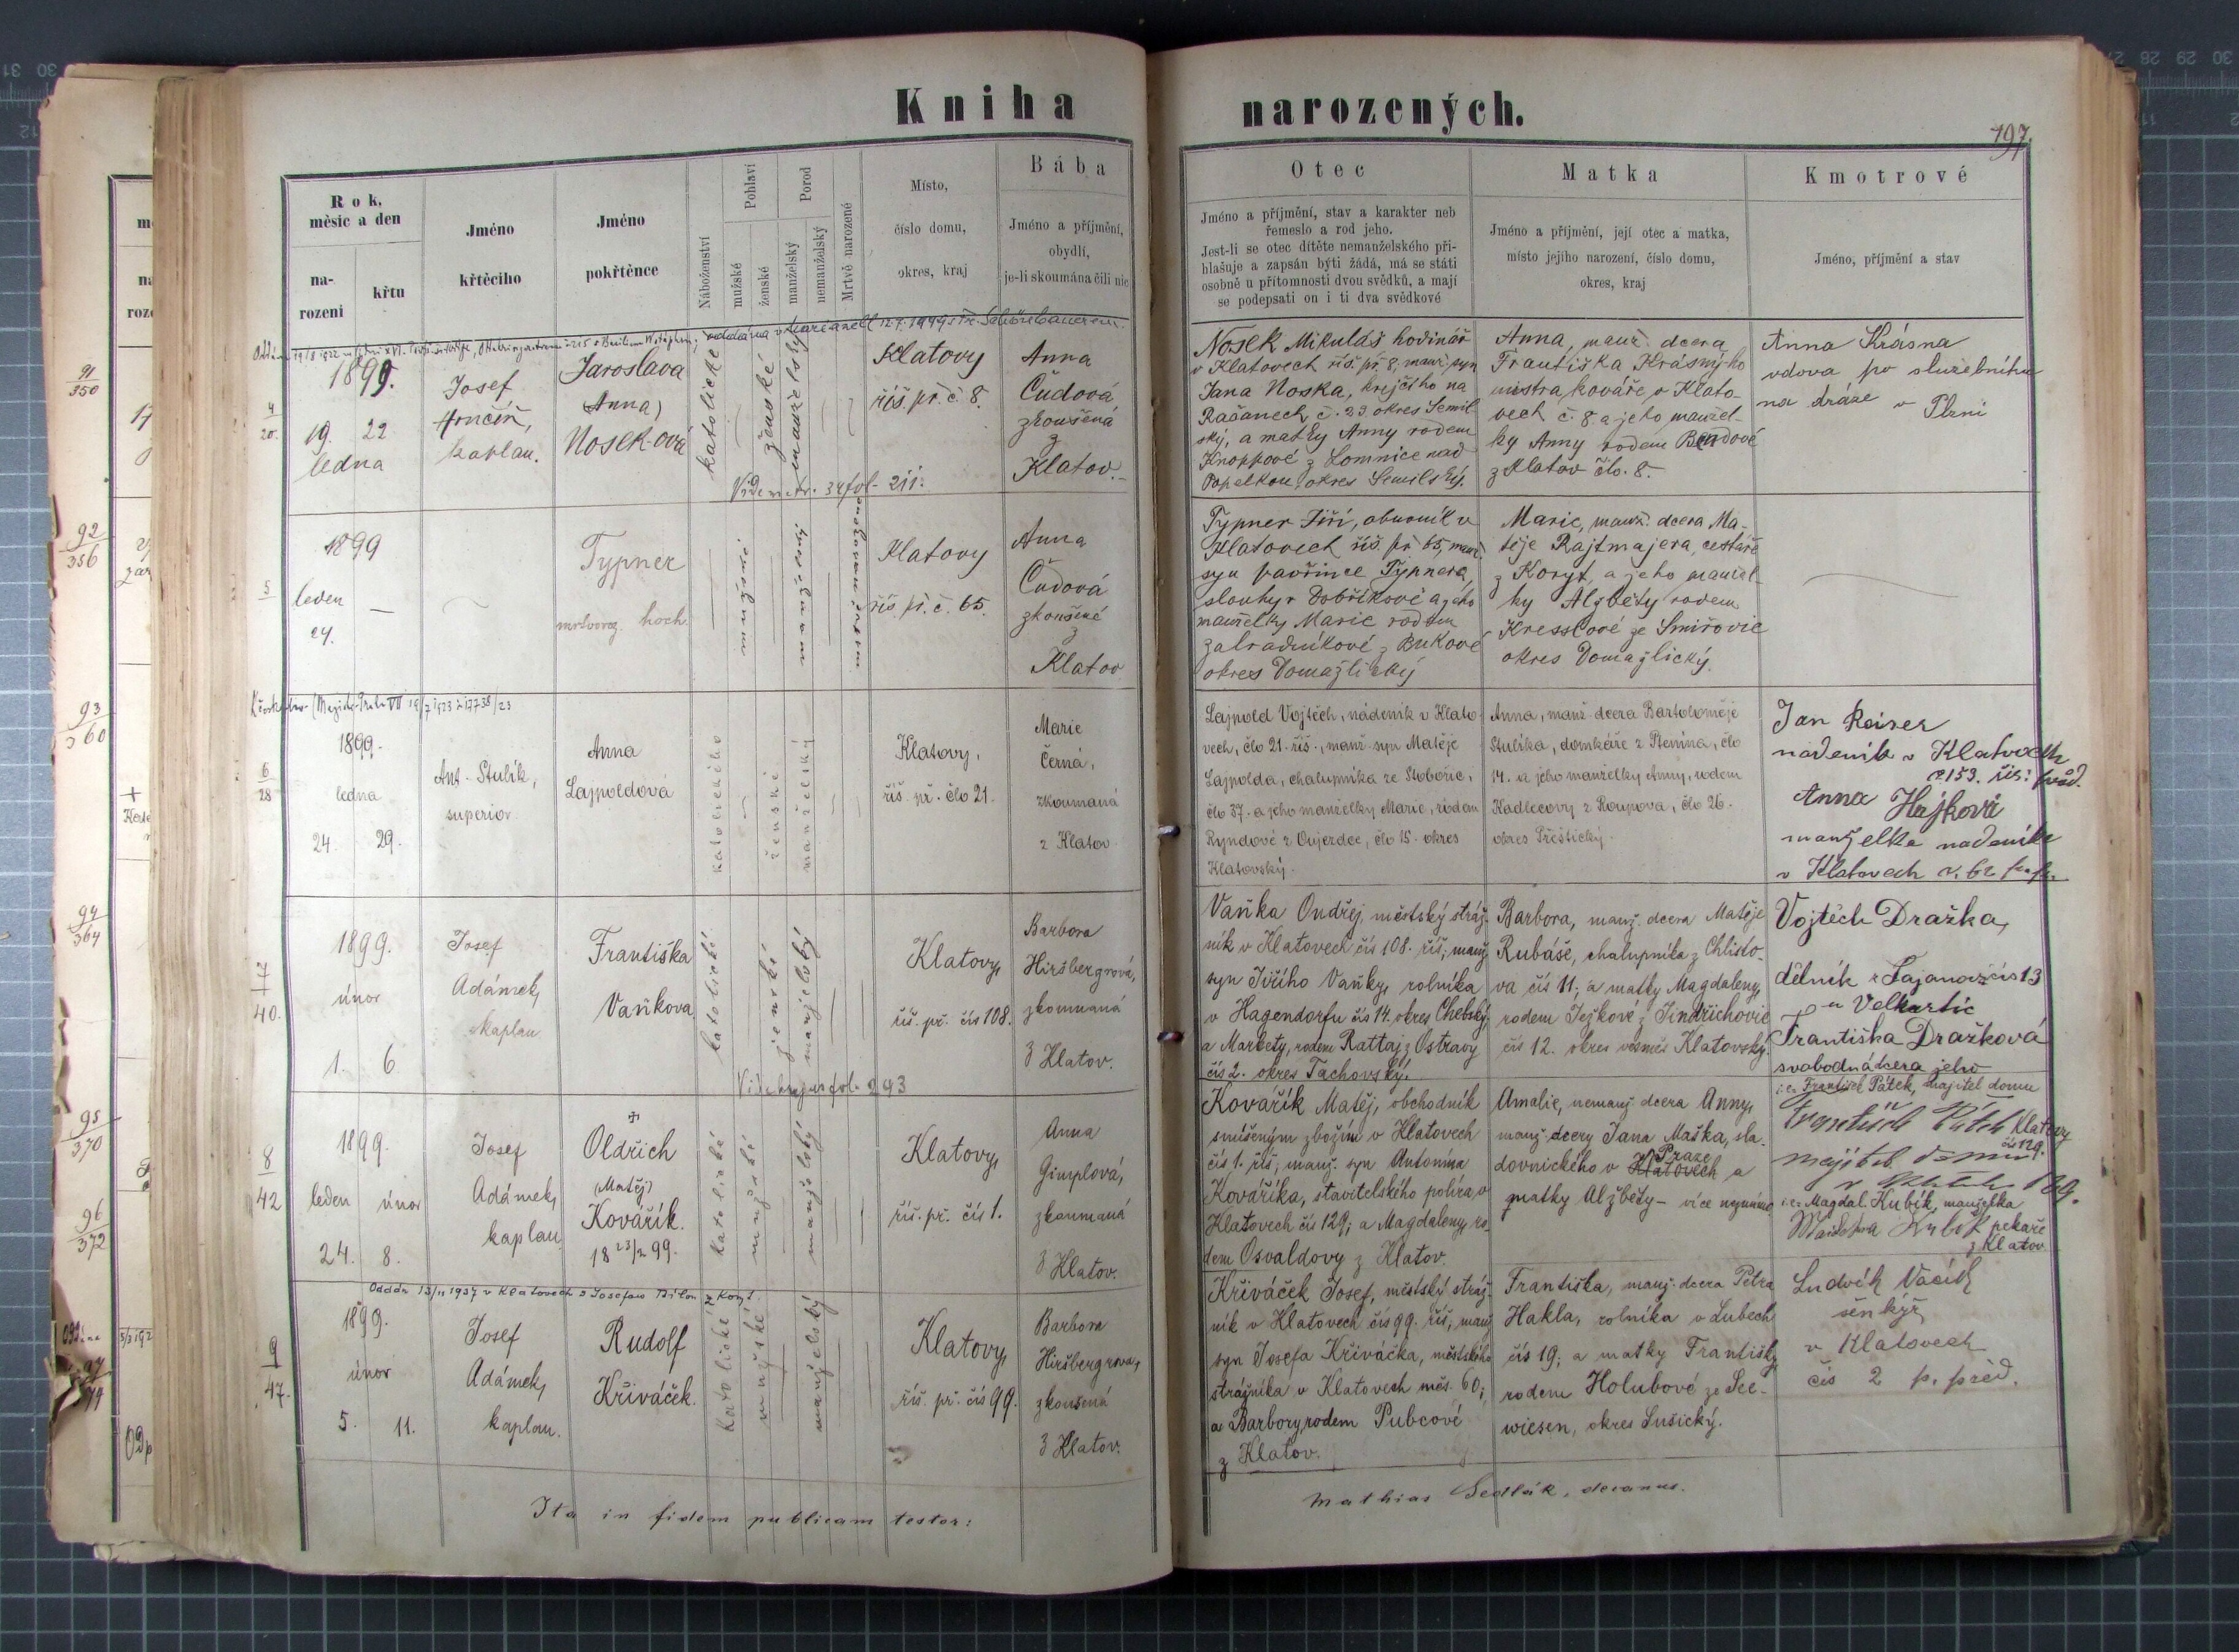 Kniha narozených.
197.
Rok, měsíc a den
narození
křtu
Jméno křtěcího
Jméno pokřtěnce
Náboženství
Pohlaví
mužské
ženské
Porod
manželský
nemanželský
Mrtvě narozené
Místo,
číslo domu,
okres, kraj
Bába
Jméno a příjmění,
obydlí,
je-li skoumána čili nic
Otec
Jméno a příjmění, stav a karakter neb
řemeslo a rod jeho.
Jest-li se otec dítěte nemanželského při-
hlašuje a zapsán býti žádá, má se státi
osobně u přítomnosti dvou svědků, a mají
se podepsati on i ti dva svědkové
Matka
Jméno a příjmění, její otec a matka,
místo jejího narození, číslo domu,
okres, kraj
Kmotrové
Jméno, příjmění a stav
91
350
4
20.
1899.
19. 22
ledna
Josef
kaplan.
Jaroslava
(Anna)
Nosek-ová
katolické
ženské
manželský
Klatovy
říš. př. č. 8.
Anna
Čudová
zkoušená
z
Klatov.
fol. 211.
Nosek Mikuláš hodinář
v Klatovech říš. př. 8, manž. syn
Jana Noska, krejčího na
Račanech, č. 23 okres Semil
ský, a matky Anny rodem
Knoppové z Lomnice nad
Popelkou, okres Semilský.
Anna, manž. dcera
Františka Krásný-ho
mistra kováře v Klato-
vech č. 8 a jeho manžel-
ky Anny rodem
z Klatov člo. 8.
Anna Krásna
vdova po služebníku
na dráze v Plzni
92
356
5
1899
leden —
24.
Typner
mrtvoroz. hoch
mužské
manželský
mrtvě narozené
Klatovy
říš. př. č. 65.
Anna
Čudová
zkoušené
z
Klatov
Typner Jiří, obuvník v
Klatovech říš. př. 65, manž.
syn Vavřince Typnera,
slouhy v Dobříkově a jeho
manželky Marie rodem
Zahradníkové z Bukové
okres Domažlický
Marie, manž. dcera Ma-
těje Rajtmajera, cestáře
z Koryt, a jeho manžel
ky Alžběty rodem
Kresslové ze Smířovic
okres Domažlický.
93
360
6
28
1899.
ledna
24. 29.
Ant. Stulík,
superior
Anna
Lajpoldová
katolického
ženské
manželský
Klatovy,
říš. př. člo 21.
Marie
Černá,
zkoumaná
z Klatov
Lajpold Vojtěch, nádeník v Klato
vech, člo 21. říš., manž. syn Matěje
Lajpolda, chalupníka ze Slobořic,
člo 37. a jeho manželky Marie, rodem
Ryndové z Oujezdce, člo 15. okres
Klatovský.
Anna, manž. dcera Bartoloměje
Stulíka, domkáře z Ptenína, člo
14. a jeho manželky Anny, rodem
Kadlecovy z Roupova, člo 26.
okres Přeštický.
Jan Reiser
nádeník v Klatovech
č 153. říš. před.
Anna Hájková
manželka nádeníka
v Klatovech
94
364
7
40.
1899.
únor
1. 6
Josef
Adámek,
kaplan
Františka
Vaňkova
katolické
ženské
manželský
Klatovy,
říš. př. čís 108.
Barbora
Hiršbergrová,
zkoumaná
z Klatov.
fol. 293
Vaňka Ondřej, městský stráž-
ník v Klatovech čís 108. říš., manž
syn Jiřího Vaňky, rolníka
v Hagendorfu čís 14. okres Chebský
a Markety, rodem Rattaj z Ostravy
čís 2. okres Tachovský.
Barbora, manž. dcera Matěje
Rubáše, chalupníka z Chlisto-
va čís 11; a matky Magdaleny,
rodem Ježkové z Jindřichovic
čís 12. okres vesměs Klatovský.
Vojtěch Dražka,
dělník z Fajanová čís 13
u Velhartic
Františka Dražková
svobodná dcera jeho
95
370
8
42
1899.
leden únor
24. 8.
Josef
Adámek,
kaplan
Oldřich
(Matěj)
Kovářík.
18 23/2 99.
katolické
mužské
manželský
Klatovy,
říš. př. čís 1.
Anna
Gimplová,
zkoumaná
z Klatov.
Kovářík Matěj, obchodník
smíšeným zbožím v Klatovech
čís 1. říš., manž. syn Antonína
Kováříka, stavitelského políra v
Klatovech čís 129; a Magdaleny, ro-
dem Osvaldovy z Klatov.
Amalie, nemanž. dcera Anny,
manž. dcery Jana Maška, sla-
dovnického v Klatovech Praze a
matky Alžběty – více neznámo
František Pátek, majitel domu
Klatovy
čís 129.
Magdal. Kubík, manželka
pekaře
z Klatov
96
372
9
47.
Oddán 13/11 1937 v Klatovech s Josefou
1899.
únor
5. 11.
Josef
Adámek,
kaplan.
Rudolf
Křiváček.
Katolické
mužské
manželský
Klatovy,
říš. př. čís 99.
Barbora
Hiršbergrova,
zkoušená
z Klatov.
Křiváček Josef, městský stráž-
ník v Klatovech čís 99. říš., manž
syn Josefa Křiváčka, městského
strážníka v Klatovech měs. 60;
a Barbory, rodem Pubcové
z Klatov.
Františka, manž. dcera Petra
Hakla, rolníka v Lubech
čís 19; a matky Františky
rodem Holubové ze See-
wiesen, okres Sušický.
Ludvík Vacík
šenkýř
v Klatovech
čís 2 p. před.
Ita in fidem publicam testor:
Mathias Sedlák, decanus.